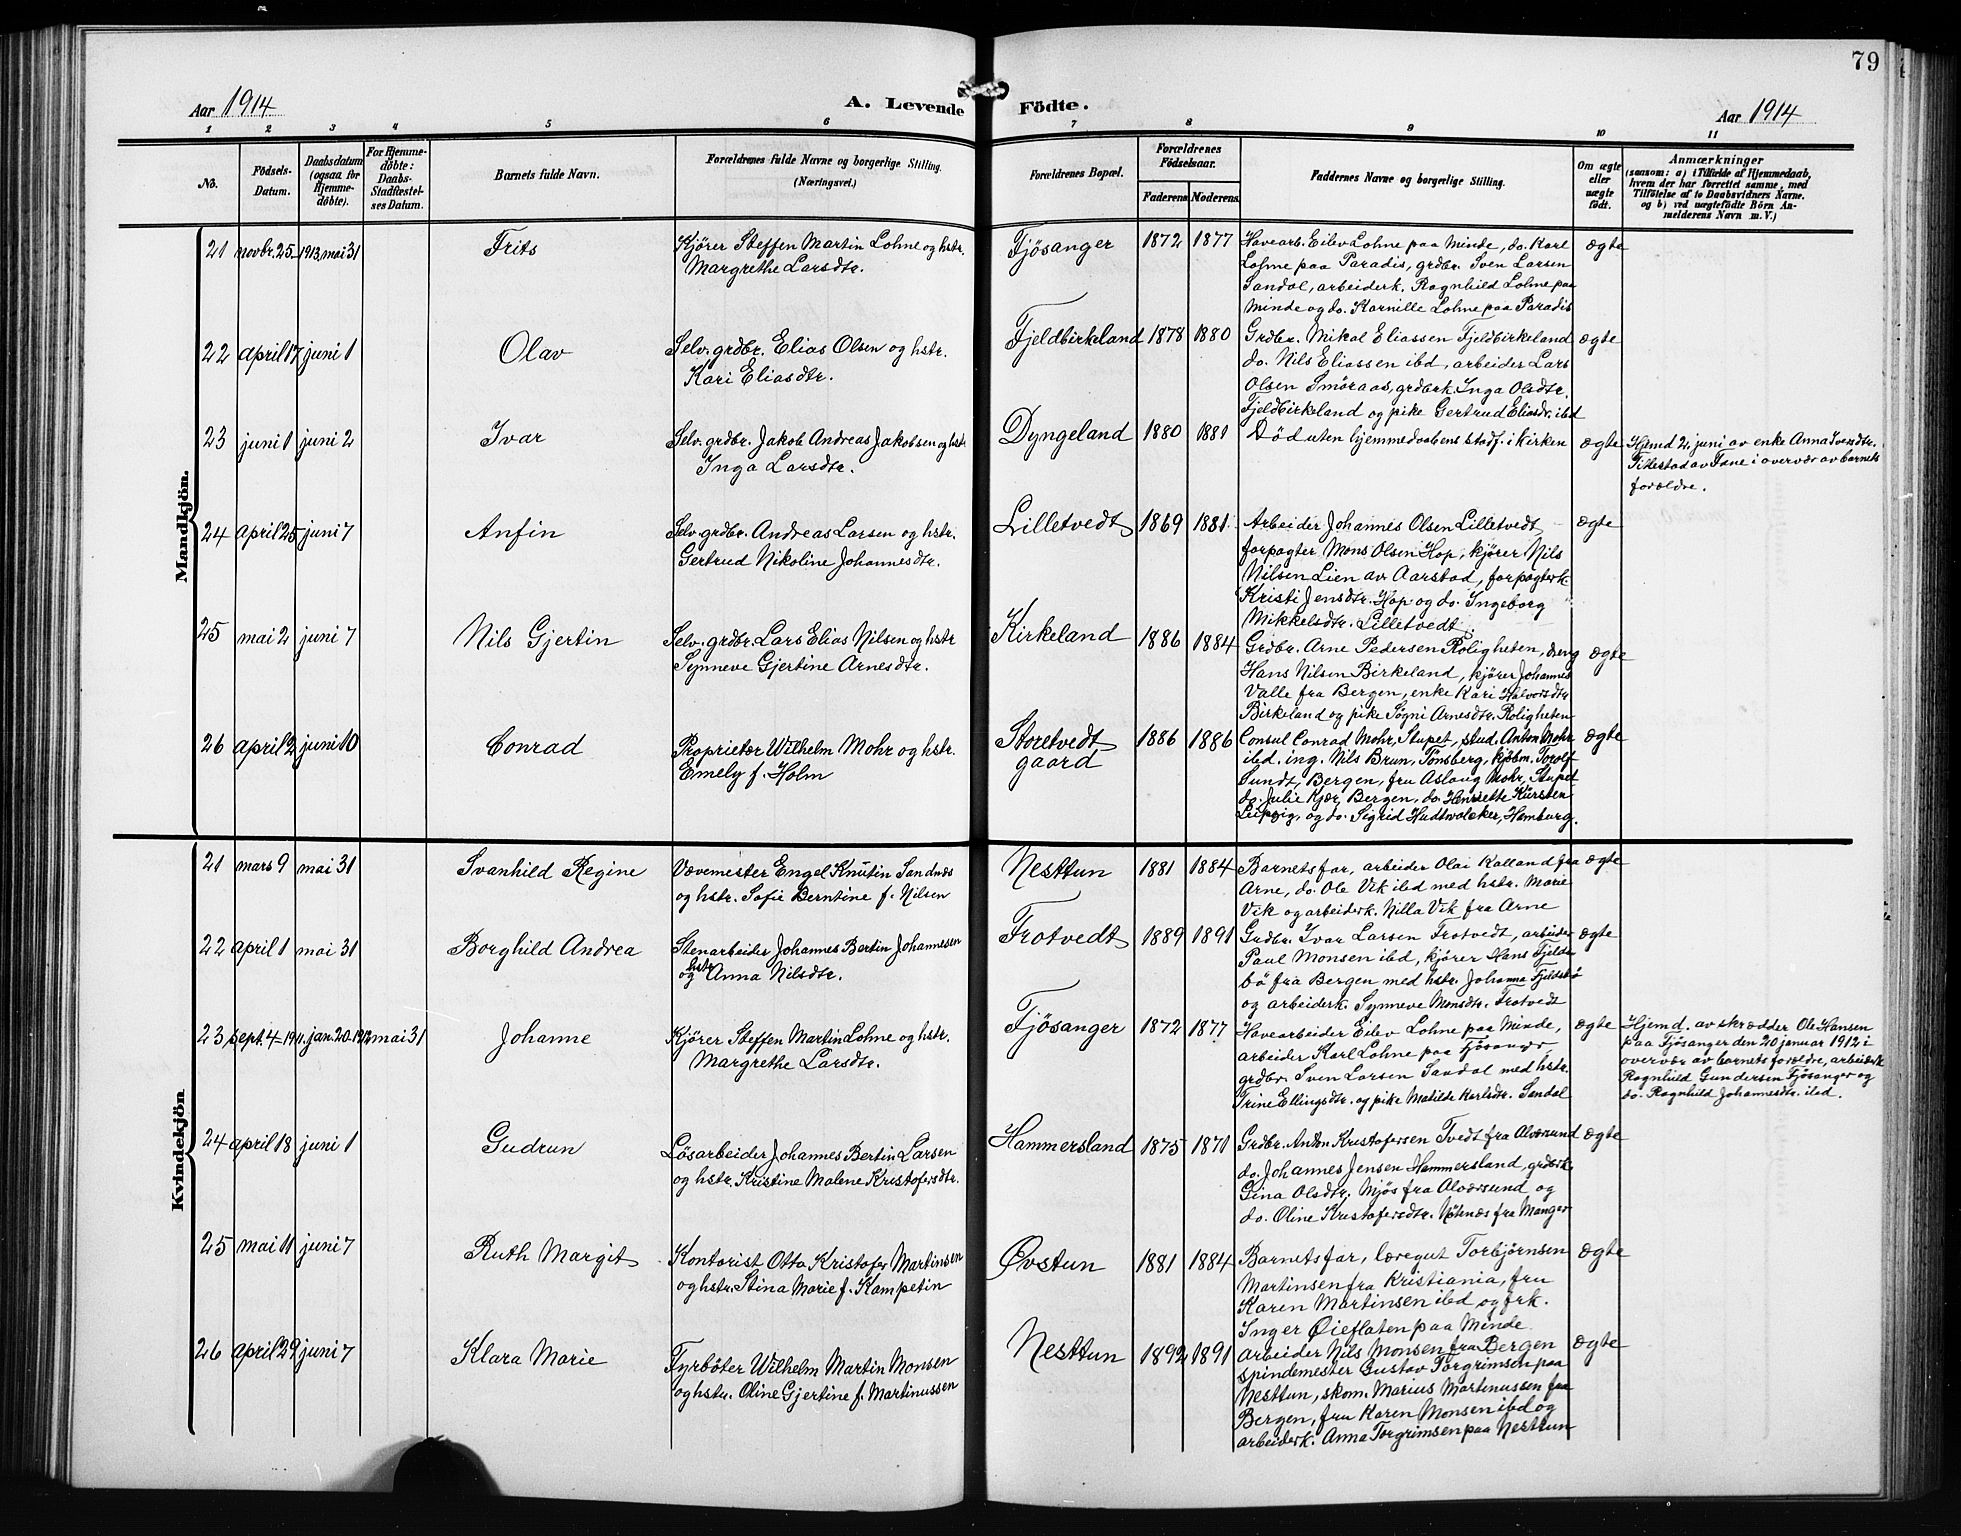 79
Aar 1914
A. Levende Födte.
Aar 1914
1 2 3 4 5 6 7 8 9 10 11
No.
Födsels-Datum.
Daabsdatum (ogsaa for Hjemme-döbte).
For Hjemme-döbte: Daabs-Stadfæstel-ses Datum.
Barnets fulde Navn.
Forældrenes fulde Navne og borgerlige Stilling. (Næringsvei.)
Forældrenes Bopæl.
Forældrenes Födselsaar.
Faderens Moderens
Faddernes Navne og borgerlige Stilling.
Om ægte eller uægte födt.
Anmærkninger
(saasom: a) i Tilfælde af Hjemmedaab,
hvem der har forrettet samme, med
Tilföielse af to Daabsvidners Navne.
og b) ved uægtefödte Börn An-
melderens Navn m. V.)
Mandkjön.
21 novbr. 25. 1913 mai 31 Frits
Kjörer Steffen Martin Lohne og hstr.
Margrethe Larsdtr.
Fjösanger 1872 1877
Havearb. Eilev Lohne paa Minde, do. Karl
Lohne paa Paradis, grdbr. Sven Larsen
Sandal, arbeiderk. Ragnhild Lohne paa
Minde og do. Kornille Lohne paa Paradis
ægte
22 april 17 juni 1 Olav
Selv. grdbr. Elias Olsen og hstr.
Kari Eliasdtr.
Fjeldbirkeland 1878 1880
Grdbr. Mikal Eliassen Fjeldbirkeland
do. Nils Eliassen ibd, arbeider Lars
Olsen Smöraas, grdbrk. Inga Olsdtr.
Fjeldbirkeland og pike Gertrud Eliasdr. ibd
ægte
23 juni 1 juni 2 Ivar
Selv. grdbr. Jakob Andreas Jakobsen og hstr
Inga Larsdtr.
Dyngeland 1880 1881
Död uten hjemmedaabens stadf. i kirken
ægte
Hjemd 2. juni av enke Anna Iversdtr.
Titlestad av Fane i overvær av barnets
forældre.
24 april 25 juni 7 Anfin
Selv. grdbr. Andreas Larsen og hstr.
Gertrud Nikoline Johannesdtr.
Lilletvedt 1869 1881
Arbeider Johannes Olsen Lilletvedt,
forpagter Mons Olsen Hop, kjörer Nils
Nilsen Lien av Aarstad, forpagterk.
Kristi Jensdtr. Hop og do. Ingeborg
Mikkelsdtr. Lilletvedt
ægte
25 mai 2 juni 7 Nils Gjertin
Selv. grdbr. Lars Elias Nilsen og hstr
Synneve Gjertine Arnesdtr.
Kirkeland 1886 1884
Grdbr. Arne Pedersen Roligheten, dreng
Hans Nilsen Birkeland, kjörer Johannes
Valle fra Bergen, enke Kari Halvorsdtr
Birkeland og pike Sögni Arnesdtr. Roligheten
ægte
26 april 2 juni 10 Conrad
Proprietær Wilhelm Mohr og hstr.
Emely f. Holm
Storetvedt
gaard
1886 1886
Consul Conrad Mohr, Stupet, stud. Anton Mohr
ibd. ing. Nils Brun, Tönsberg, kjöbm. Torolf
Sundt, Bergen, fru Aslaug Mohr, Stupet
do. Julie Kjær, Bergen, do. Henriette Kürsten
Leipzig, og do. Sigrid Hudtwalcker, Hamburg.
ægte
Kvindekjön
21 mars 9 mai 31 Svanhild Regine
Vævemester Engel Knutin Sandnæs
og hstr. Sofie Berntine f. Nilsen
Nesttun 1881 1884
Barnets far, arbeider Olai Kalland fra
Arne, do. Ole Vik ibd med hstr. Marie
Vik og arbeiderk. Nilla Vik fra Arne
ægte
22 april 1 mai 31 Borghild Andrea
Stenarbeider Johannes Bertin Johannesen
og hstr Anna Nilsdtr.
Trotvedt 1889 1891
Grdbr. Ivar Larsen Trotvedt, arbeider
Paul Monsen ibd, kjörer Hans Fjelds
bö fra Bergen med hstr. Johanna Fjeldsbö
og arbeiderk. Synneve Monsdtr. Trotvedt
ægte
23 sept. 4-1911. jan. 20-1912 mai 31 Johanne
Kjörer Steffen Martin Lohne og hstr.
Margrethe Larsdtr.
Fjösanger 1872 1877
Havearbeider Eilev Lohne paa Minde,
arbeider Karl Lohne paa Fjösanger
grdbr. Sven Larsen Sandal med hstr.
Trine Ellingsdtr. og pike Matilde Karlsdtr. Sandal
ægte
Hjemd. av skrædder Ole Hansen
paa Fjösanger den 20 januar 1912 i
overvær av barnets forældre, arbeiderk
Ragnhild Gundersen Fjösanger og
do. Ragnhild Johannesdtr. ibd.
24 april 18 juni 1 Gudrun
Lösarbeider Johannes Bertin Larsen
og hstr. Kristine Malene Kristofersdtr.
Hammersland 1875 1871
Grdbr. Anton Kristofersen Tvedt fra Alversund
do. Johannes Jensen Hammersland, grdbrk.
Gina Olsdtr. Mjös fra Alversund og
do. Oline Kristofersdtr. Nötnæs fra Manger
ægte
25 mai 11 juni 7 Ruth Margit
Kontorist Otto Kristofer Martinsen
og hstr. Stina Marie f. Kampetin
Øvstun 1881 1884
Barnets far, læregut Torbjørnsen
Martinsen fra Kristiania, fru
Karen Martinsen ibd og frk.
Inger Øieflaten paa Minde
ægte
26 april 29 juni 7 Klara Marie
Fyrböter Wilhelm Martin Monsen
og hstr. Oline Gjertine f. Martinussen
Nesttun 1892 1891
Arbeider Nils Monsen fra Bergen
spindemester Gustav Torgrimsen paa
Nesttun, skom. Marius Martinussen fra
Bergen, fru Karen Monsen ibd og
arbeiderk. Anna Torgrimsen paa Nesttun
ægte